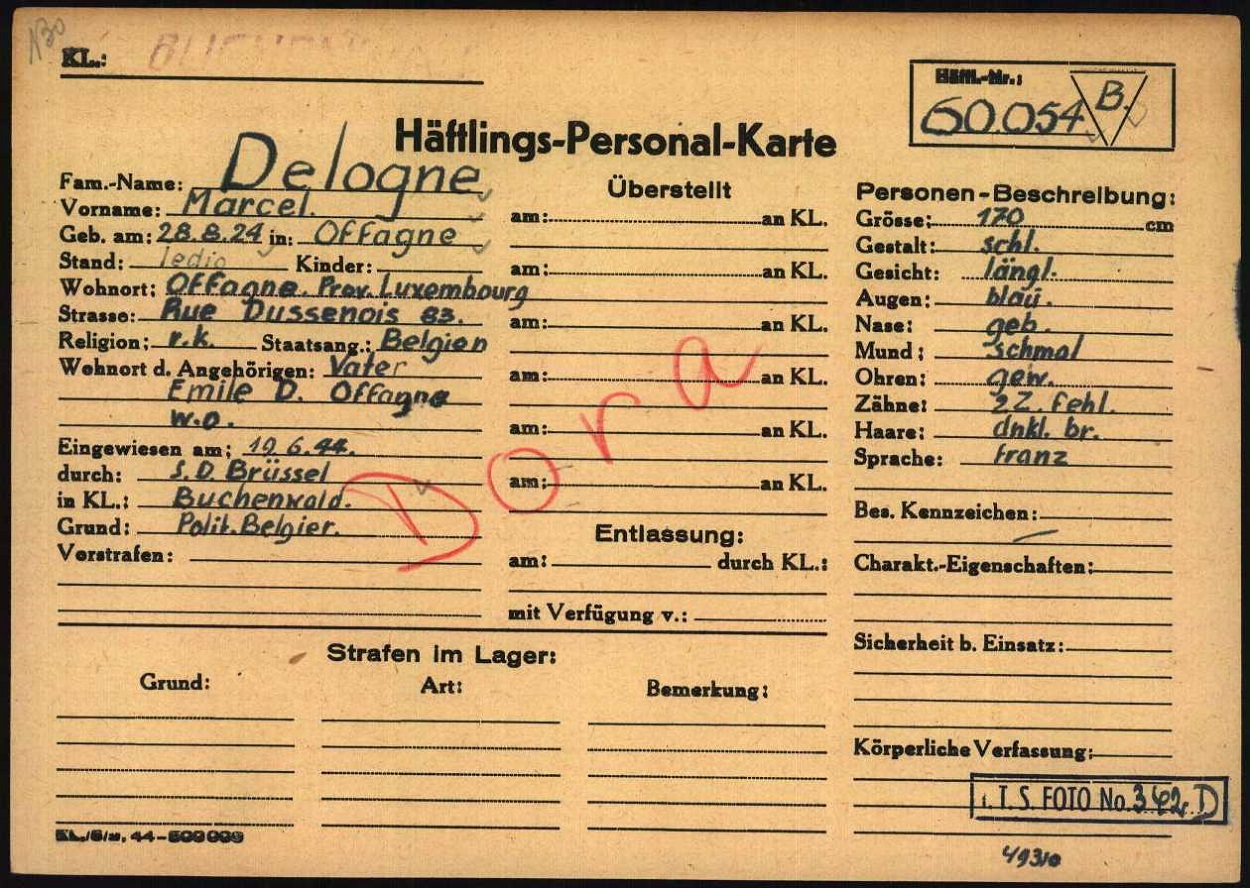 KL.: BUCHENWALD
Häftl.-Nr.:
60.054 B.
Häftlings-Personal-Karte
Fam.-Name: Delogne
Vorname: Marcel.
Geb. am: 28.8.24 in: Offagne
Stand: ledig Kinder:
Wohnort: Offagne. Prov. Luxembourg
Strasse: Rue Dussenois 83.
Religion: r.k. Staatsang.: Belgien
Wohnort d. Angehörigen: Vater
Emile D. Offagne
w.o.
Eingewiesen am: 19.6.44.
durch: S.D. Brüssel
in KL.: Buchenwald.
Grund: Polit. Belgier.
Vorstrafen:
Überstellt
am: an KL.
am: an KL.
am: an KL.
am: an KL.
am: an KL.
am: an KL.
Dora
Entlassung:
am: durch KL.:
mit Verfügung v.:
Personen-Beschreibung:
Grösse: 170 cm
Gestalt: schl.
Gesicht: längl.
Augen: blau.
Nase: geb.
Mund: schmal
Ohren: gew.
Zähne: 2 Z. fehl.
Haare: dnkl. br.
Sprache: franz
Bes. Kennzeichen:
Charakt.-Eigenschaften:
Sicherheit b. Einsatz:
Körperliche Verfassung:
Strafen im Lager:
Grund: Art: Bemerkung:
I.T.S. FOTO No.